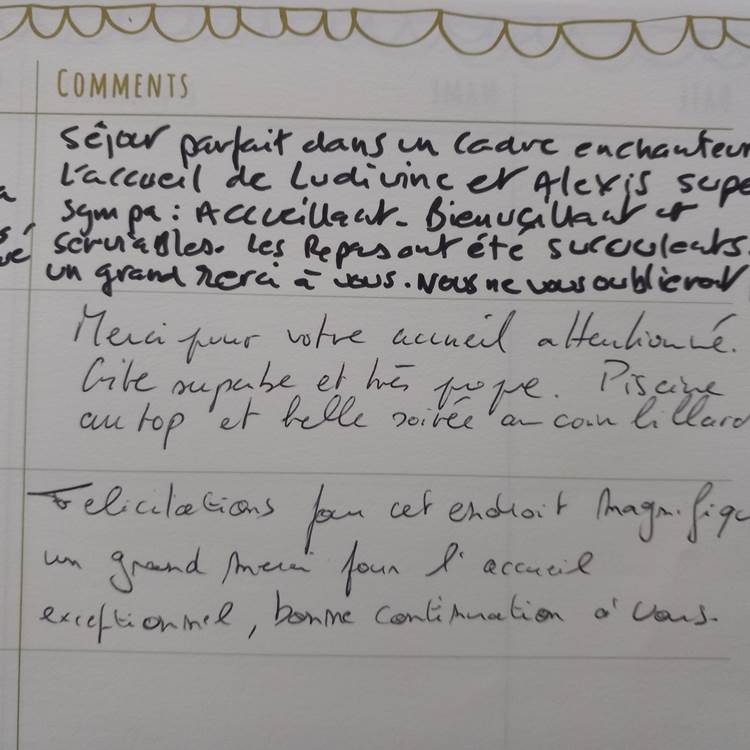 COMMENTS
Séjour parfait dans un cadre enchanteur
L'accueil de Ludivine et Alexis supe
sympa : Accueillant. Bienveillant et
serviables. Les Repas ont été succulents.
un grand merci à vous. Nous ne vous oublieront
Merci pour votre accueil attentionné.
Gîte superbe et très propre. Piscine
au top et belle soirée au coin billard
Felicitations pour cet endroit magnifiqu
un grand merci pour l'accueil
exceptionnel, bonne continuation à vous.